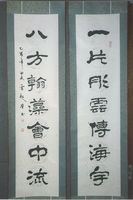 一片彤雲傳海宇
八方翰藻會中流